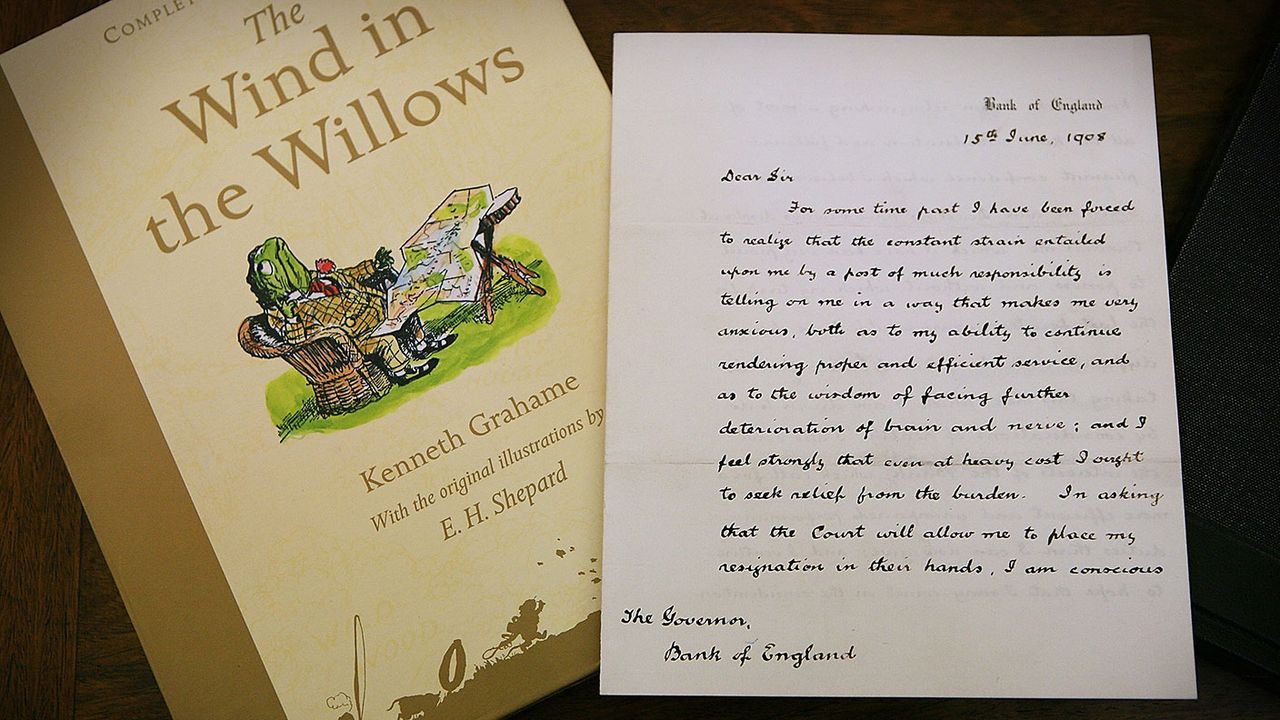 COMPLET
The
Wind in
the Willows
Kenneth Grahame
With the original illustrations by
E. H. Shepard
Bank of England
15th June, 1908
Dear Sir
For some time past I have been forced
to realize that the constant strain entailed
upon me by a post of much responsibility is
telling on me in a way that makes me very
anxious, both as to my ability to continue
rendering proper and efficient service, and
as to the wisdom of facing further
deterioration of brain and nerve; and I
feel strongly that even at heavy cost I ought
to seek relief from the burden. In asking
that the Court will allow me to place my
resignation in their hands, I am conscious
The Governor,
Bank of England